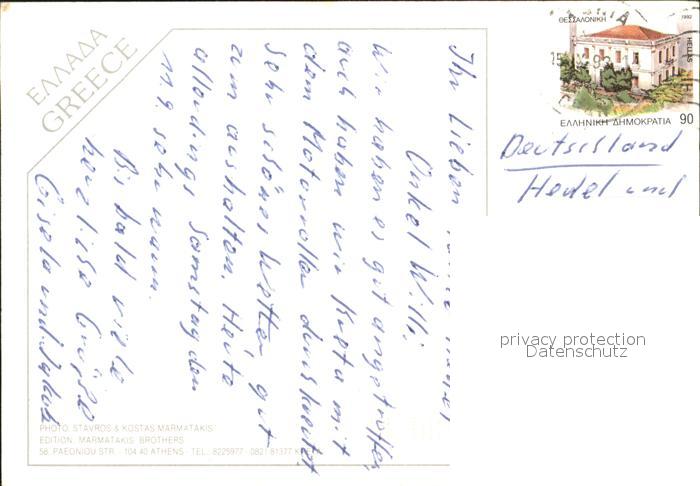 ΕΛΛΑΔΑ
GREECE
Ihr Lieben
Onkel Willi,
Wir haben es gut angetroffen,
auch haben wir Kreta mit
dem Motorroller durchkreuzt
Sehr schönes Wetter, gut
zum aushalten. Heute
allerdings Samstag den
11.9. sehr warm.
Bis bald viele
herzliche Grüße
Gisela und
PHOTO: STAVROS & KOSTAS MARMATAKIS
EDITION: MARMATAKIS BROTHERS
58, PAEONIOU STR. - 104 40 ATHENS - TEL.: 8225977 - 0821 81377
ΘΕΣΣΑΛΟΝΙΚΗ
1992
HELLAS
ΕΛΛΗΝΙΚΗ ΔΗΜΟΚΡΑΤΙΑ 90
Deutschland
und
privacy protection
Datenschutz